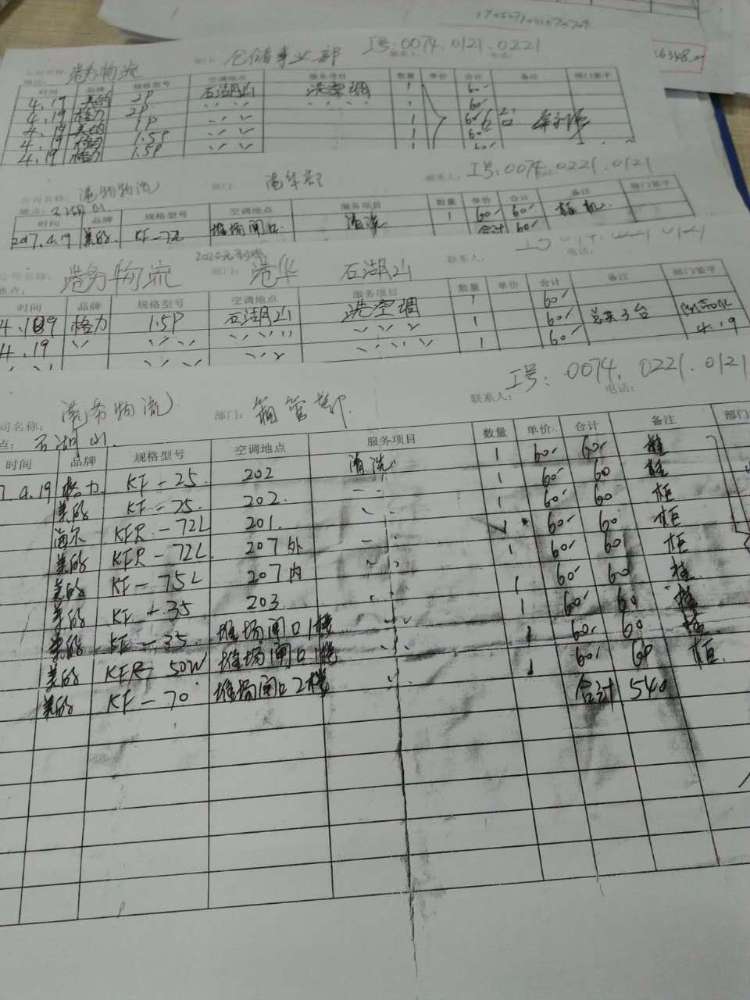 港务物流 仓储事业部 工号:0074.0121.0221
时间 品牌 规格型号 空调地点 服务项目 数量 单价 合计 备注 部门签字
4.19 美的 2P 石湖山 洗空调 1 60
4.19 格力 2P 〃 〃 1 60
4.19 1P 〃 〃 1 60 6台
4.19 格力 1.5P 1 60
4.19 格力 1.5P 1 60
公司名称: 港务物流 部门: 联系人: 工号:0074.0221.0121
地点: 石湖山
时间 品牌 规格型号 空调地点 服务项目 数量 单价 合计 备注 部门签字
2017.4.19 美的 KF-72 堆场闸口 清洗 1 60 60 柜机
合计 60
公司名称: 港务物流 部门: 港华 石湖山 联系人:
地点: 电话:
时间 品牌 规格型号 空调地点 服务项目 数量 单价 合计 备注 部门签字
4.19 格力 1.5P 石湖山 洗空调 1 60 总共3台
4.19 〃 〃 〃 〃 1 60 4.19
〃 〃 〃 〃 1 60
工号:0074.0221.0121
公司名称: 港务物流 部门: 箱管部 联系人: 电话:
点: 石湖山
时间 品牌 规格型号 空调地点 服务项目 数量 单价 合计 备注 部门
7.4.19 格力 KF-25 202 清洗 1 60 60 挂
美的 KF-25 202 〃 1 60 60 挂
海尔 KFR-72L 201 〃 1 60 60 柜
美的 KFR-72L 207外 〃 1 60 60 柜
美的 KF-75L 207内 〃 1 60 60 柜
美的 KF-35 203 〃 1 60 60 挂
美的 KF-35 堆场闸口1楼 〃 1 60 60 挂
美的 KFR-50W 堆场闸口1楼 〃 1 60 60 挂
美的 KF-70 堆场闸口2楼 〃 1 60 60 柜
合计 540